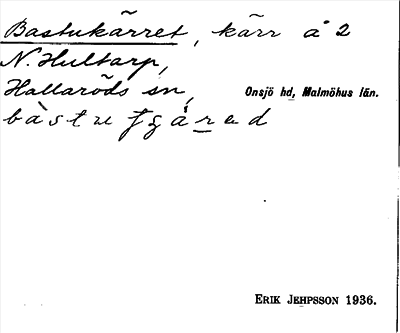 Bastukärret, kärr å 2
N. Hultarp,
Hallaröds sn, Onsjö hd, Malmöhus län.
ERIK JEHPSSON 1936.